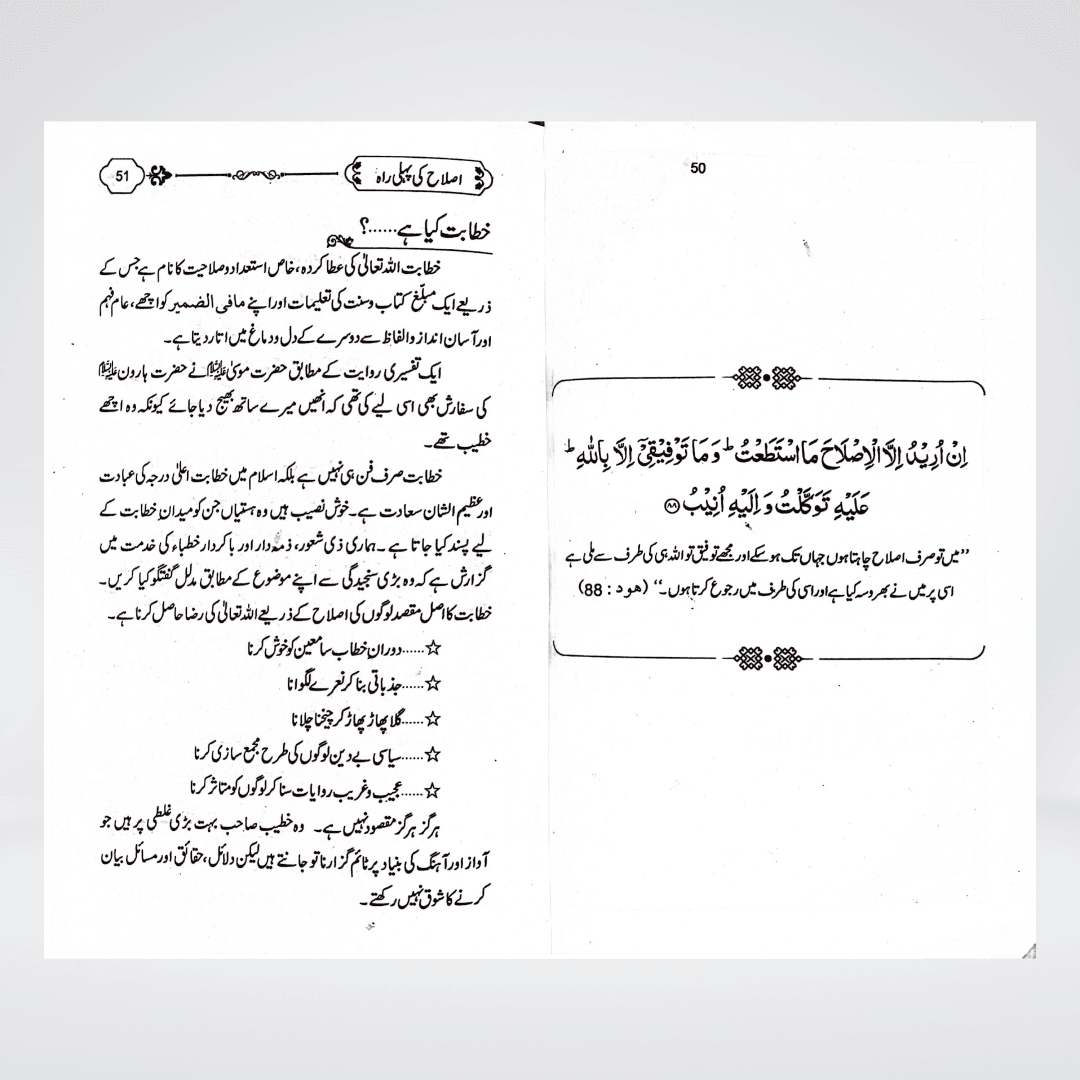 50
اِنْ اُرِیْدُ اِلَّا الْاِصْلَاحَ مَا اسْتَطَعْتُ ؕ وَ مَا تَوْفِیْقِیْۤ اِلَّا بِاللّٰهِ ؕ
عَلَیْهِ تَوَكَّلْتُ وَ اِلَیْهِ اُنِیْبُ ﴿۸۸﴾
’’میں تو صرف اصلاح چاہتا ہوں جہاں تک ہو سکے اور مجھے توفیق تو اللہ ہی کی طرف سے ملی ہے
اسی پر میں نے بھروسہ کیا ہے اور اسی کی طرف میں رجوع کرتا ہوں۔‘‘ (هود : 88)
اصلاح کی پہلی راہ 51
خطابت کیا ہے……؟
خطابت اللہ تعالیٰ کی عطا کردہ، خاص استعداد و صلاحیت کا نام ہے جس کے
ذریعے ایک مبلّغ کتاب وسنت کی تعلیمات اور اپنے مافی الضمیر کو اچھے، عام فہم
اور آسان انداز و الفاظ سے دوسرے کے دل و دماغ میں اتار دیتا ہے۔
ایک تفسیری روایت کے مطابق حضرت موسیٰ علیہ السلام نے حضرت ہارون علیہ السلام
کی سفارش بھی اسی لیے کی تھی کہ انھیں میرے ساتھ بھیج دیا جائے کیونکہ وہ اچھے
خطیب تھے۔
خطابت صرف فن ہی نہیں ہے بلکہ اسلام میں خطابت اعلیٰ درجہ کی عبادت
اور عظیم الشان سعادت ہے۔ خوش نصیب ہیں وہ ہستیاں جن کو میدانِ خطابت کے
لیے پسند کیا جاتا ہے۔ ہماری ذی شعور، ذمہ دار اور باکردار خطباء کی خدمت میں
گزارش ہے کہ وہ بڑی سنجیدگی سے اپنے موضوع کے مطابق مدلل گفتگو کیا کریں۔
خطابت کا اصل مقصد لوگوں کی اصلاح کے ذریعے اللہ تعالیٰ کی رضا حاصل کرنا ہے۔
☆……دورانِ خطاب سامعین کو خوش کرنا
☆……جذباتی بنا کر نعرے لگوانا
☆……گلا پھاڑ پھاڑ کر چیخنا چلانا
☆……سیاسی بے دین لوگوں کی طرح مجمع سازی کرنا
☆……عجیب و غریب روایات سنا کر لوگوں کو متاثر کرنا
ہرگز ہرگز مقصود نہیں ہے۔ وہ خطیب صاحب بہت بڑی غلطی پر ہیں جو
آواز اور آہنگ کی بنیاد پر ٹائم گزارنا تو جانتے ہیں لیکن دلائل، حقائق اور مسائل بیان
کرنے کا شوق نہیں رکھتے۔